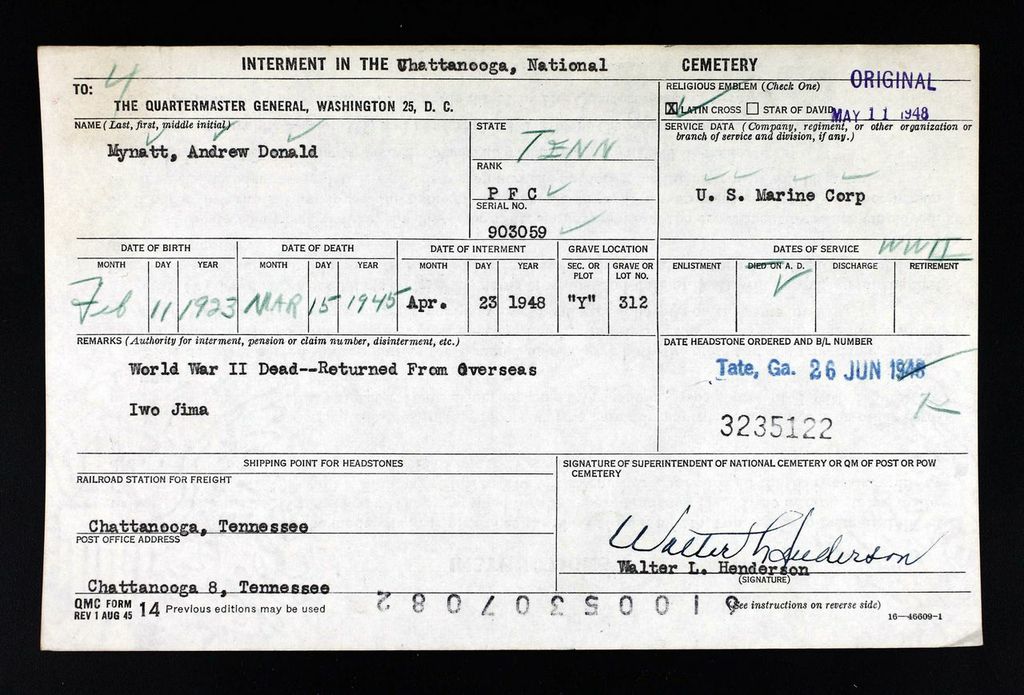 INTERMENT IN THE Chattanooga, National CEMETERY
4
TO:
THE QUARTERMASTER GENERAL, WASHINGTON 25, D. C.
RELIGIOUS EMBLEM (Check One)
ORIGINAL
X LATIN CROSS STAR OF DAVID
MAY 11 1948
NAME (Last, first, middle initial)
Mynatt, Andrew Donald
STATE
TENN
RANK
P F C
SERIAL NO.
903059
SERVICE DATA (Company, regiment, or other organization or
branch of service and division, if any.)
U. S. Marine Corp
DATE OF BIRTH DATE OF DEATH DATE OF INTERMENT GRAVE LOCATION
DATES OF SERVICE WWII
MONTH DAY YEAR MONTH DAY YEAR MONTH DAY YEAR SEC. OR PLOT GRAVE OR LOT NO.
ENLISTMENT DIED ON A. D. DISCHARGE RETIREMENT
Feb 11 1923 MAR 15 1945 Apr. 23 1948 "Y" 312
REMARKS (Authority for interment, pension or claim number, disinterment, etc.)
World War II Dead--Returned From Overseas
Iwo Jima
DATE HEADSTONE ORDERED AND B/L NUMBER
Tate, Ga. 26 JUN 1948
3235122
SHIPPING POINT FOR HEADSTONES
RAILROAD STATION FOR FREIGHT
Chattanooga, Tennessee
POST OFFICE ADDRESS
Chattanooga 8, Tennessee
SIGNATURE OF SUPERINTENDENT OF NATIONAL CEMETERY OR QM OF POST OR POW
CEMETERY
Walter L Henderson
Walter L. Henderson
(SIGNATURE)
QMC FORM 14 Previous editions may be used
REV 1 AUG 45
(See instructions on reverse side)
16—46609-1